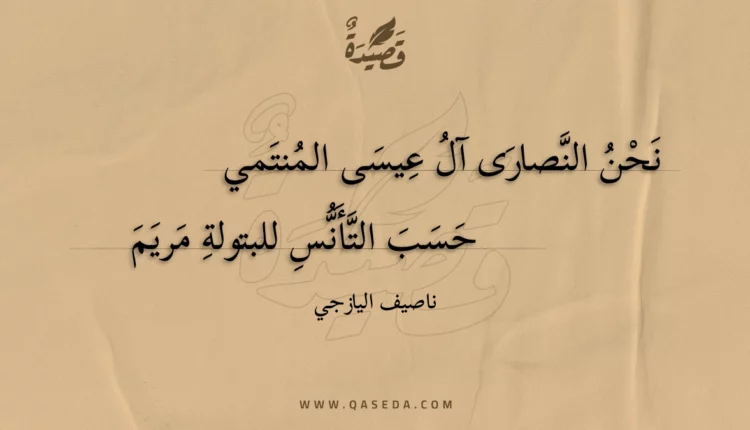 قَصِيْدَةٌ
نَحْنُ النَّصارَى آلُ عِيسَى المُنتَمي
حَسَبَ التَّأَنُّسِ للبتولةِ مَريَمَ
ناصيف اليازجي
WWW.QASEDA.COM